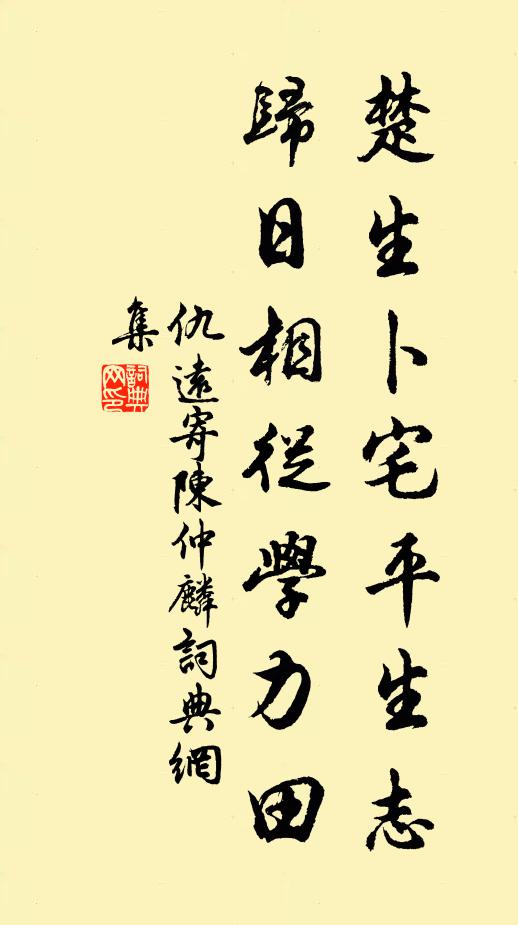 楚生卜宅平生志
歸日相從學力田
仇遠寄陳仲麟詞典網
集
詞典網印